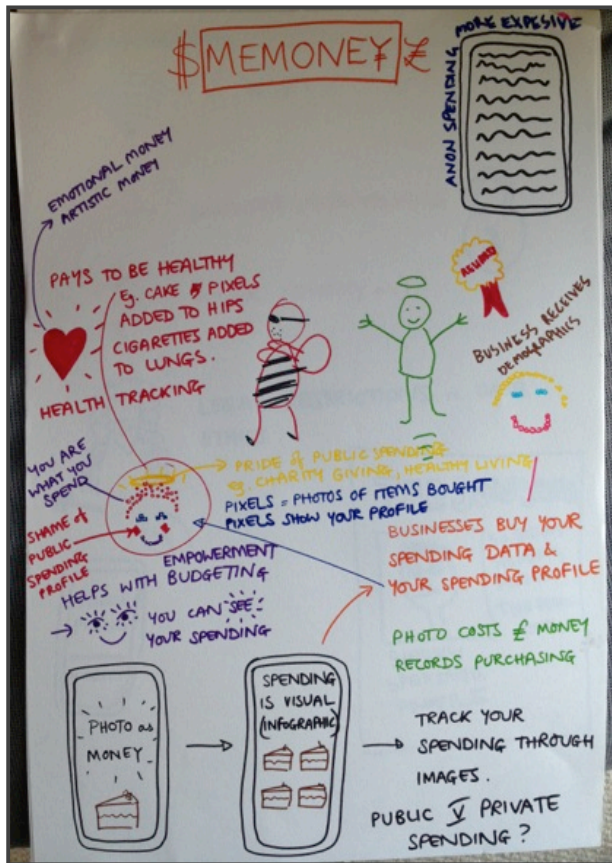 $ MEMONEY £
MORE EXPESIVE
ANON SPENDING
EMOTIONAL MONEY
ARTISTIC MONEY
PAYS TO BE HEALTHY
Eg. CAKE PIXELS
ADDED TO HIPS
CIGARETTES ADDED
TO LUNGS.
HEALTH TRACKING
AWARD
BUSINESS RECEIVES
DEMOGRAPHICS
YOU ARE
WHAT YOU
SPEND
PRIDE of PUBLIC SPENDING
eg. CHARITY GIVING, HEALTHY LIVING
PIXELS = PHOTOS OF ITEMS BOUGHT
PIXELS SHOW YOUR PROFILE
SHAME of
PUBLIC
SPENDING
PROFILE
EMPOWERMENT
HELPS WITH BUDGETING
YOU CAN SEE
YOUR SPENDING
BUSINESSES BUY YOUR
SPENDING DATA &
YOUR SPENDING PROFILE
PHOTO COSTS £ MONEY
RECORDS PURCHASING
PHOTO as
MONEY
SPENDING
IS VISUAL
(INFOGRAPHIC)
TRACK YOUR
SPENDING THROUGH
IMAGES.
PUBLIC V PRIVATE
SPENDING?